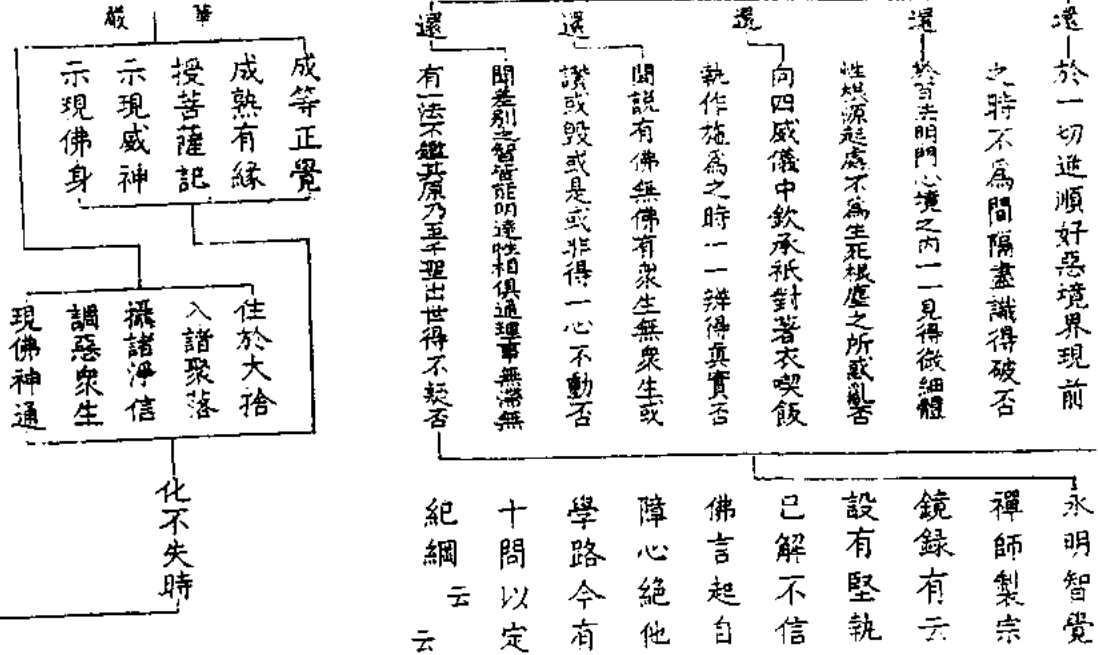 還
於一切違順好惡境界現前
之時不為間隔盡識得破否
還
於百法明門心境之內一一見得微細體
性根源起處不為生死根塵之所惑亂否
還
向四威儀中欽承祇對著衣喫飯
執作施為之時一一辨得真實否
還
聞說有佛無佛有衆生無衆生或
讚或毀或是或非得一心不動否
還
聞差別之智皆能明達性相俱通理事無滯無
有一法不鑑其原乃至千聖出世得不疑否
永明智覺
禪師製宗
鏡録有云
設有堅執
己解不信
佛言起自
障心絕他
學路今有
十問以定
紀綱云
云
華嚴
成等正覺
成熟有緣
授菩薩記
示現威神
示現佛身
住於大捨
入諸聚落
攝諸淨信
調惡衆生
現佛神通
化不失時